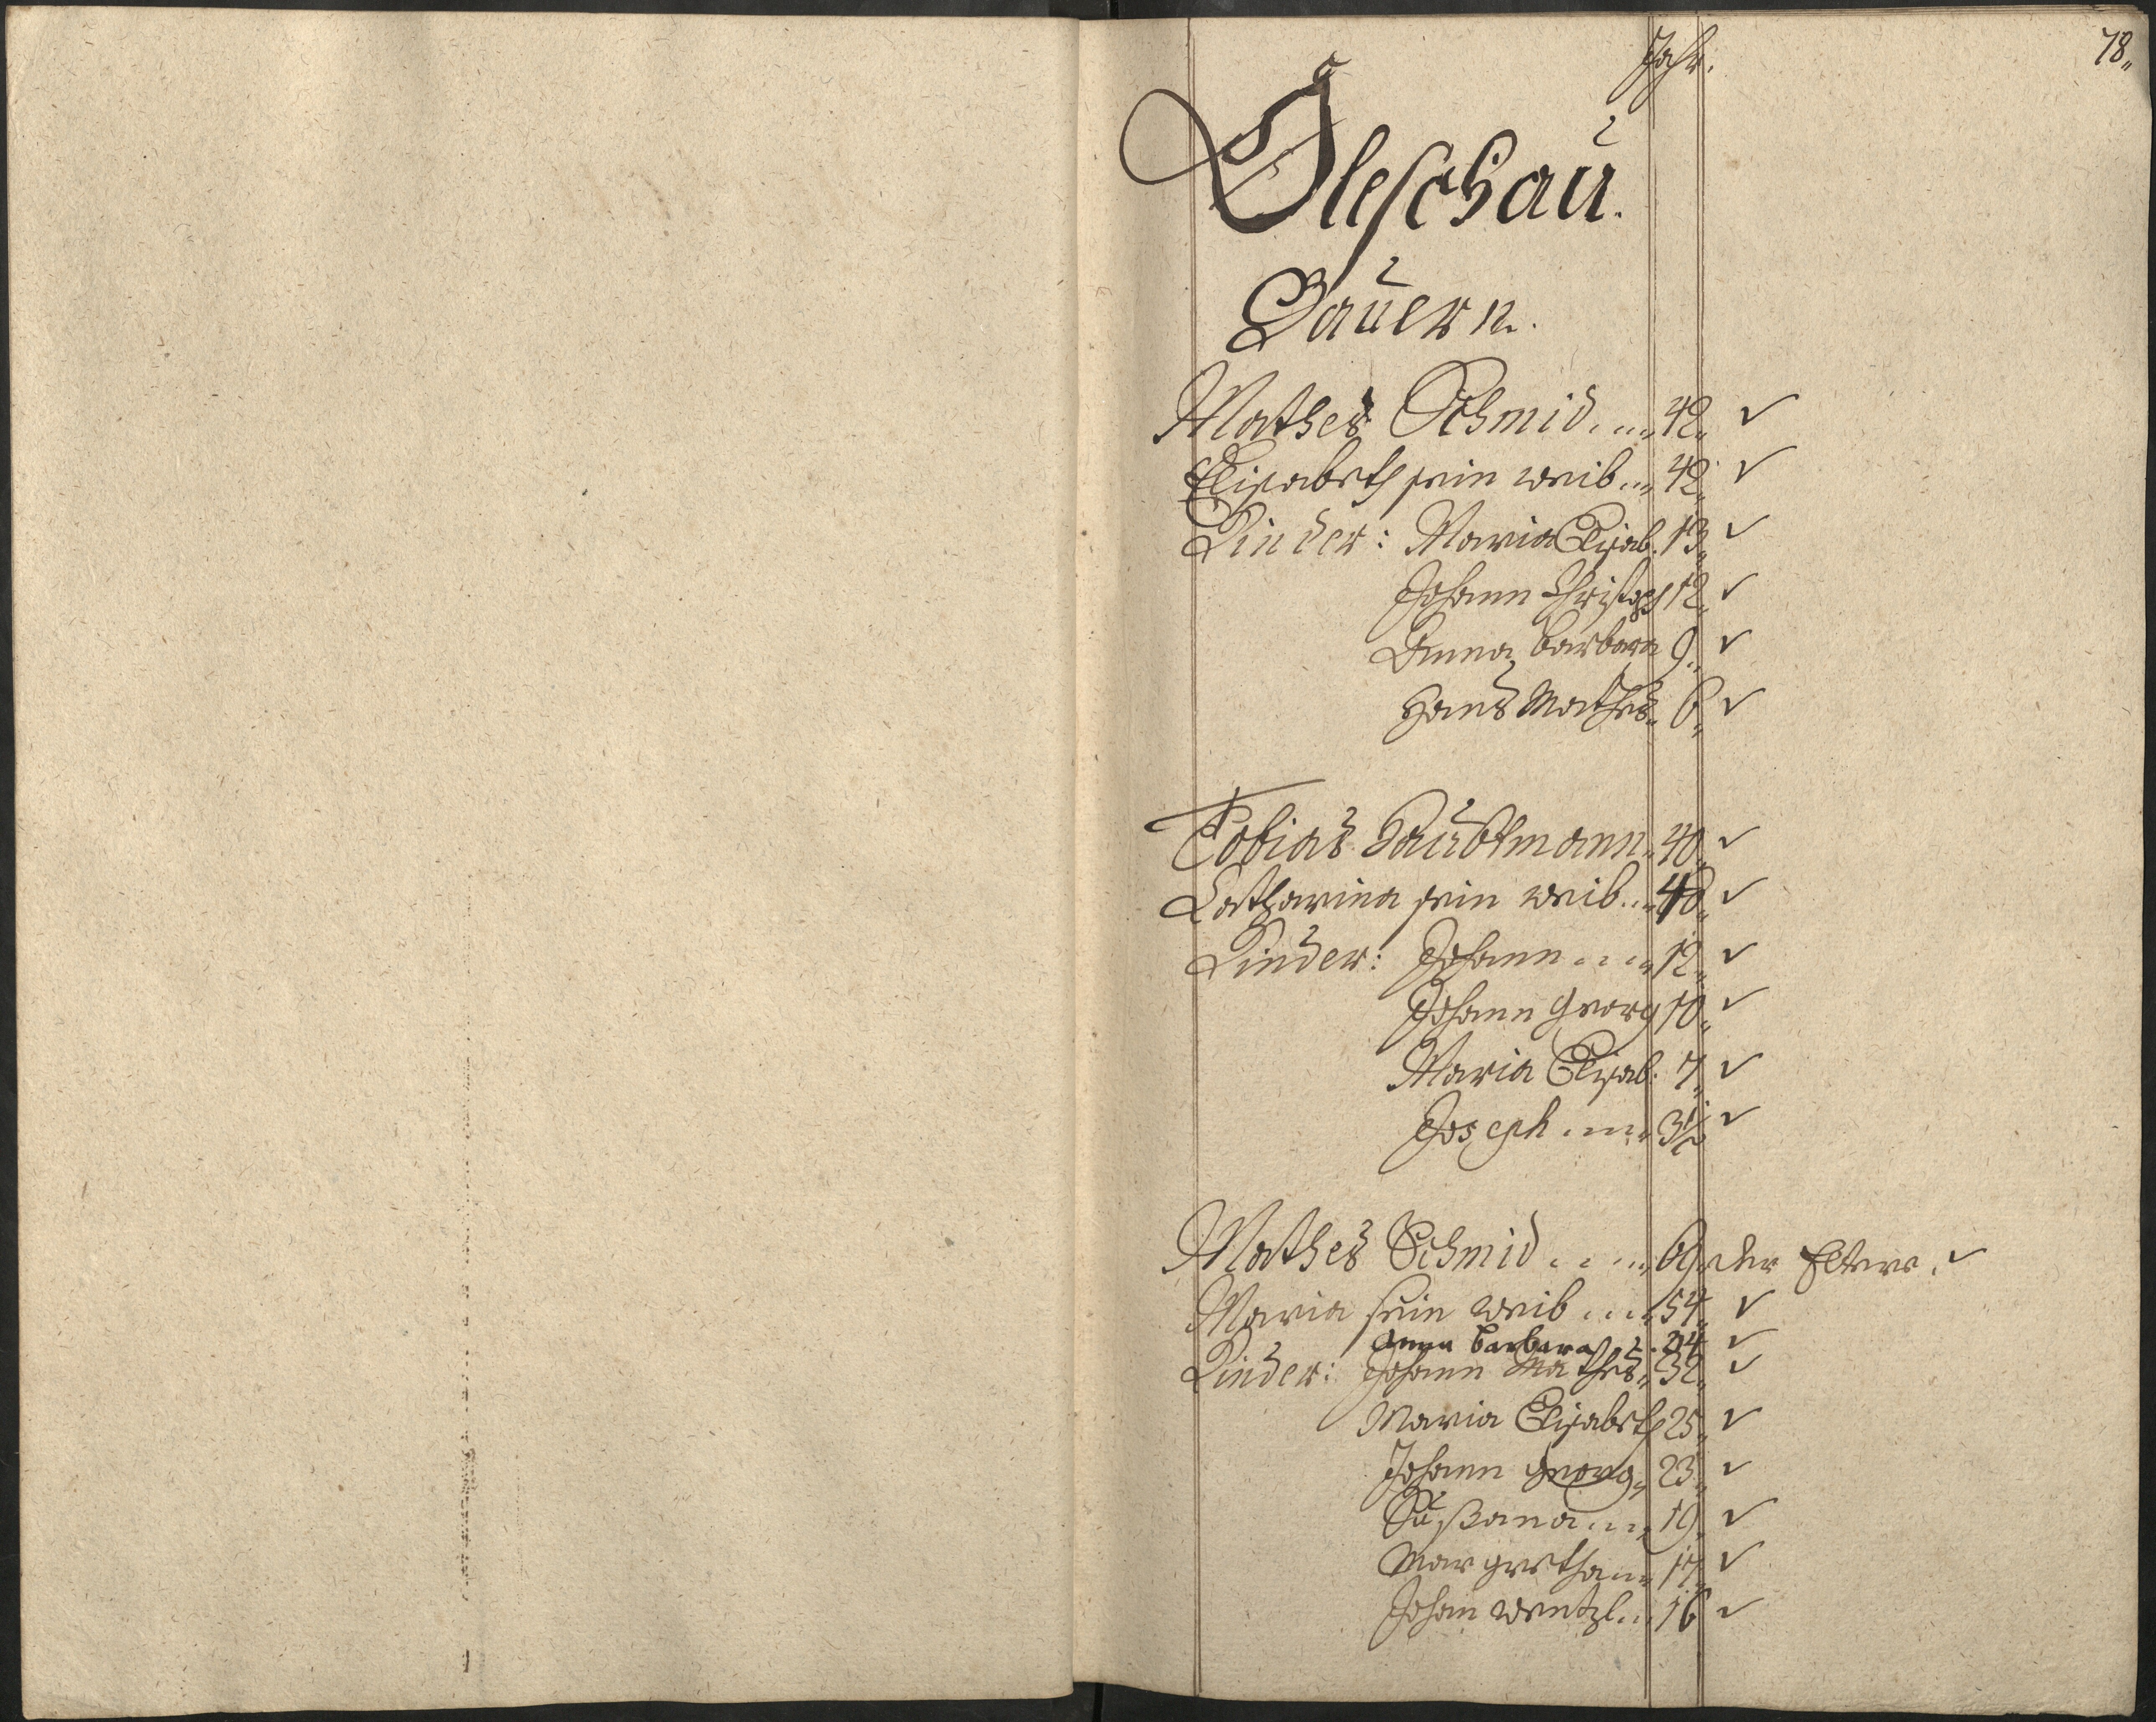 78„
Jahr.
Oleschau.
Bauern.
Mathes Schmid.... 42„ ✓
Elisabeth sein weib... 42„ ✓
Kinder: Maria Elisab. 13„ ✓
Johann Christoph 12„ ✓
Anna Barbara 9„ ✓
Hans Mathes„ 6„ ✓
Tobias Haubtmann„ 40„ ✓
Catharina sein weib... 40„ ✓
Kinder: Johann.... 12„ ✓
Johann Georg 10„ ✓
Maria Elisab. 7„ ✓
Joseph.... 3½ ✓
Mathes Schmid.... 69„ der Eltere. ✓
Maria sein weib.... 54„ ✓
Anna Barbara 24 ✓
Kinder: Johann Mathes„ 32„ ✓
Maria Elisabeth 25„ ✓
Johann Georg„ 23„ ✓
Sußana.... 19„ ✓
Margretha.. 17„ ✓
Johan Wentzl... 16 ✓